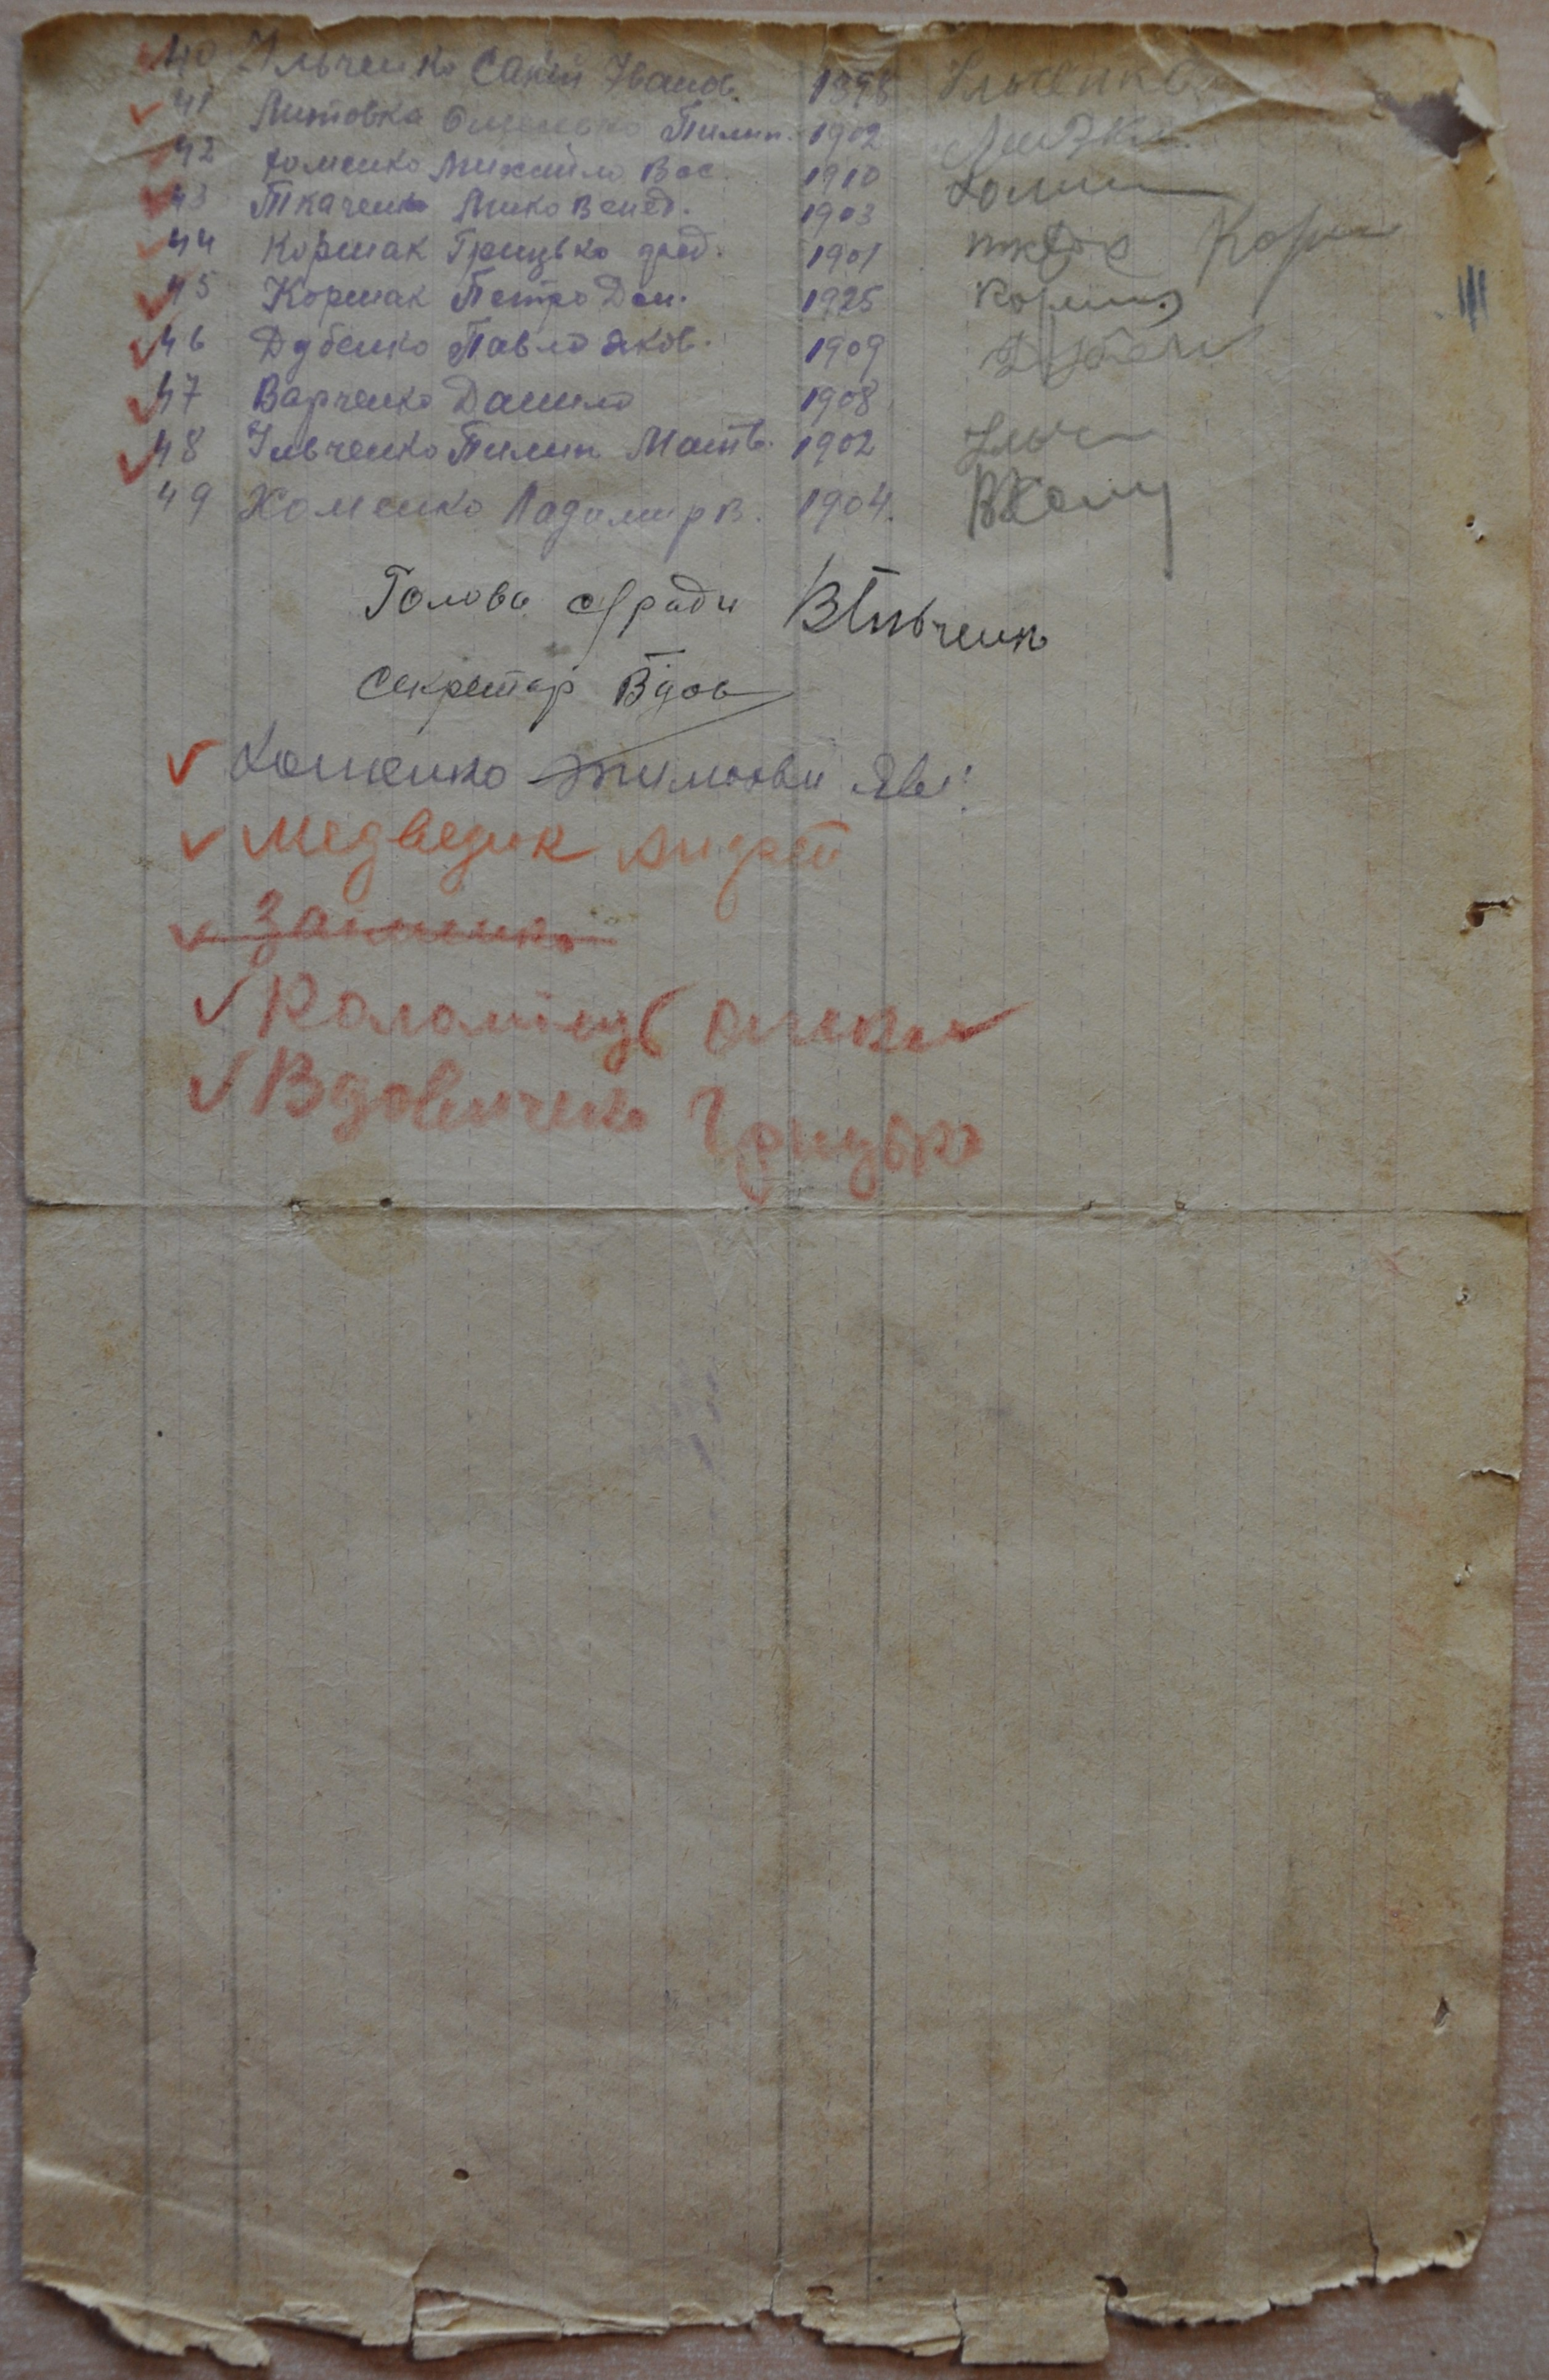 40 Ільченко Сакій Іванов. 1898 Ільченко
41 Литовка Омелько Пилип. 1902
42 Хоменко Михайло Вас. 1910 Хоми
43 Ткаченко Мико Венед. 1903
44 Коршак Грицько 1901 Корш
45 Коршак Петро Дем. 1925 Корш
46 Дубенко Павло Яков. 1909 Дубен
47 Варченко Данило 1908
48 Ільченко Пилип Матв. 1902 Ільч
49 Хоменко Ладомир В. 1904. ВХом
Голова с/ради ВІльченко
Секретар Вдов
Хоменко Тимофій
Медведик Андрей
Заиченко
Коломієць Олекса
Вдовиченко Грицько